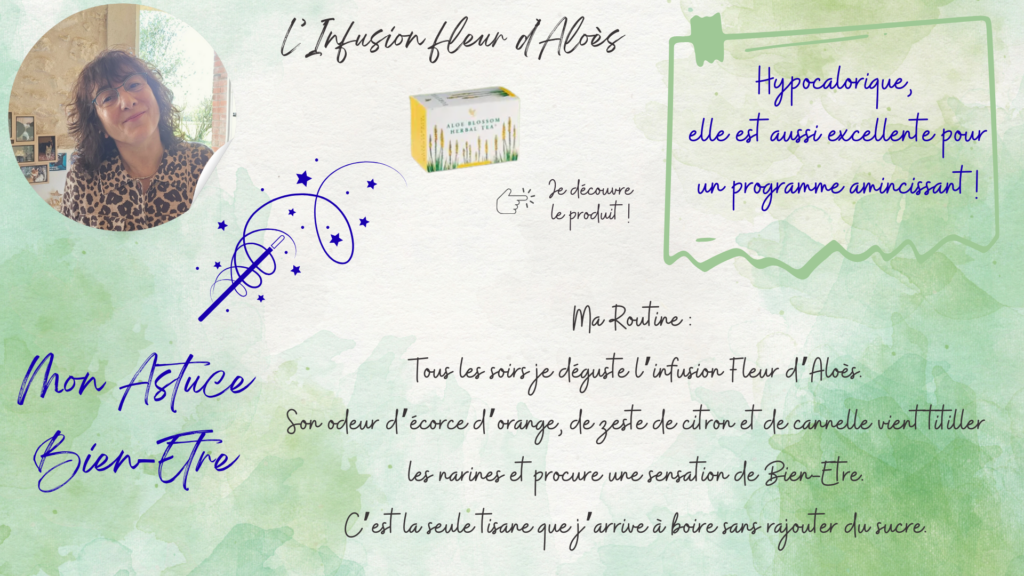 L'Infusion fleur d'Aloès
ALOE BLOSSOM
HERBAL TEA
Je découvre
le produit !
Hypocalorique,
elle est aussi excellente pour
un programme amincissant !
Mon Astuce
Bien-Etre
Ma Routine :
Tous les soirs je déguste l'infusion Fleur d'Aloès.
Son odeur d'écorce d'orange, de zeste de citron et de cannelle vient titiller
les narines et procure une sensation de Bien-Etre.
C'est la seule tisane que j'arrive à boire sans rajouter du sucre.